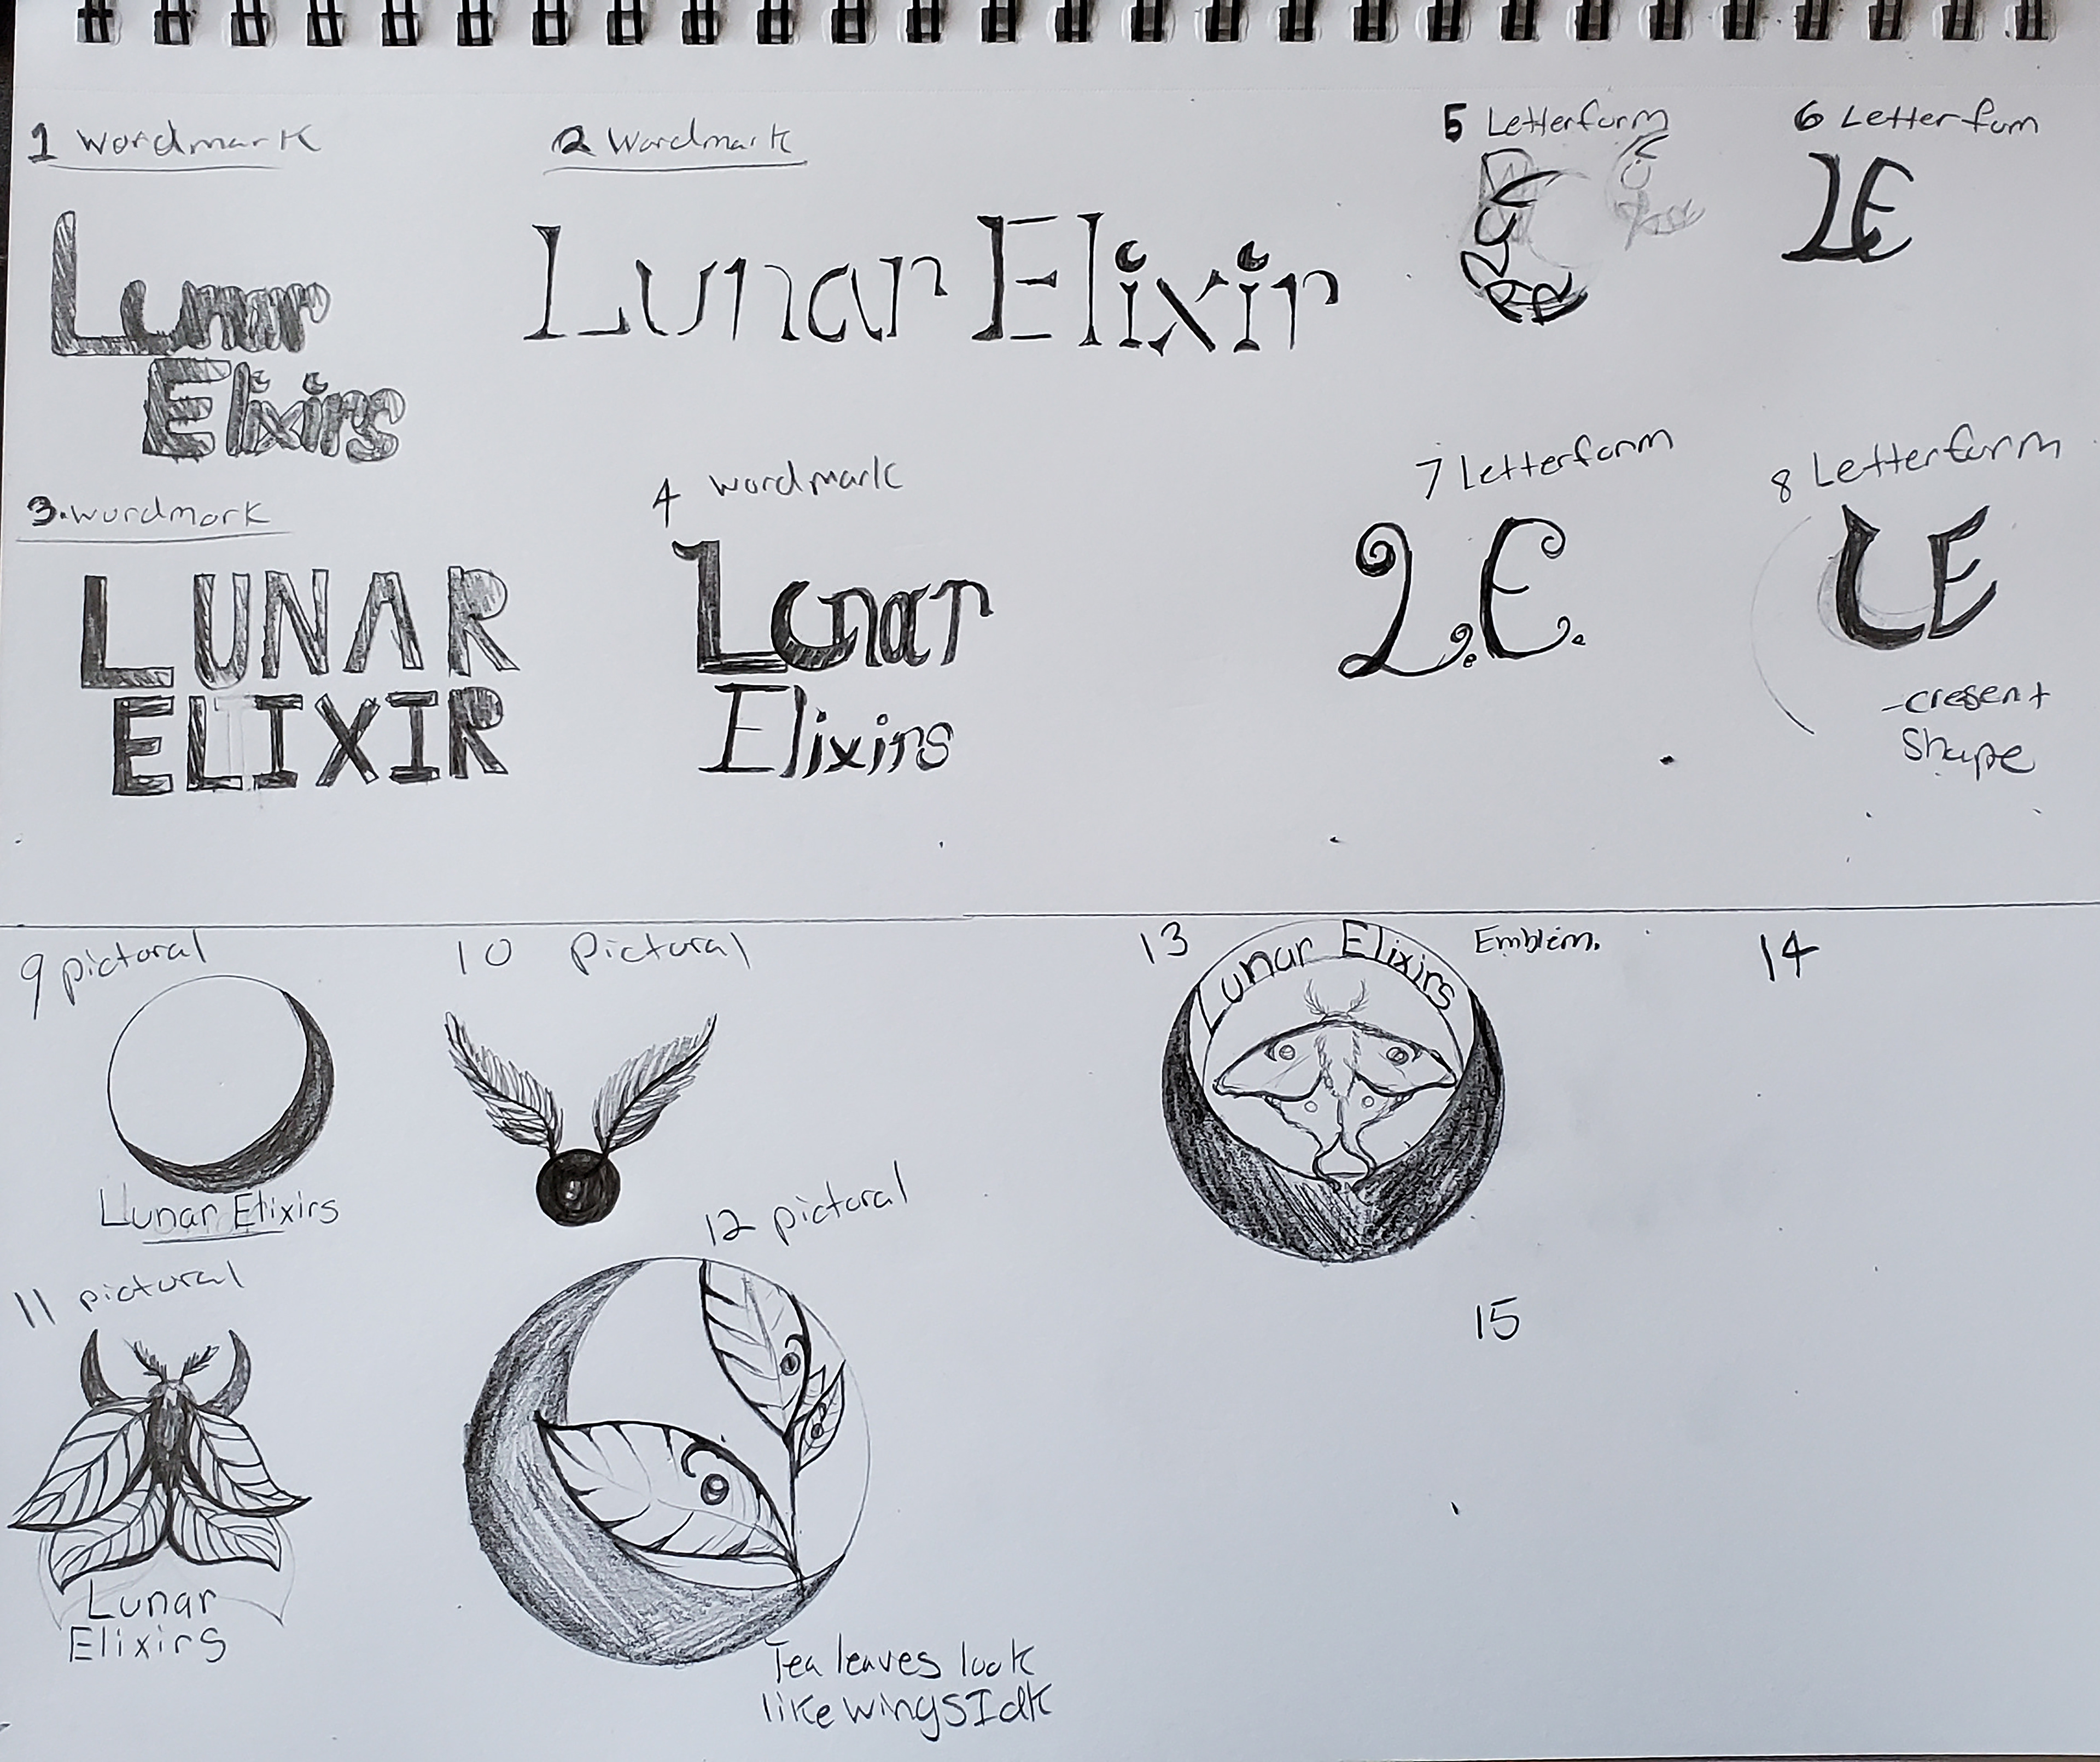 1 Wordmark
2 Wordmark
5 Letterform
6 Letterfom
Lunar
Elixirs
Lunar Elixir
LE
3. wordmark
4 wordmark
7 Letterform
8 Letterform
LUNAR
ELIXIR
Lunar
Elixirs
L.E.
LE
-cresent
Shape
9 pictoral
10 Pictural
13
Emblem.
14
Lunar Elixirs
Lunar Elixirs
12 pictoral
11 pictural
15
Lunar
Elixirs
Tea leaves look
like wings Idk